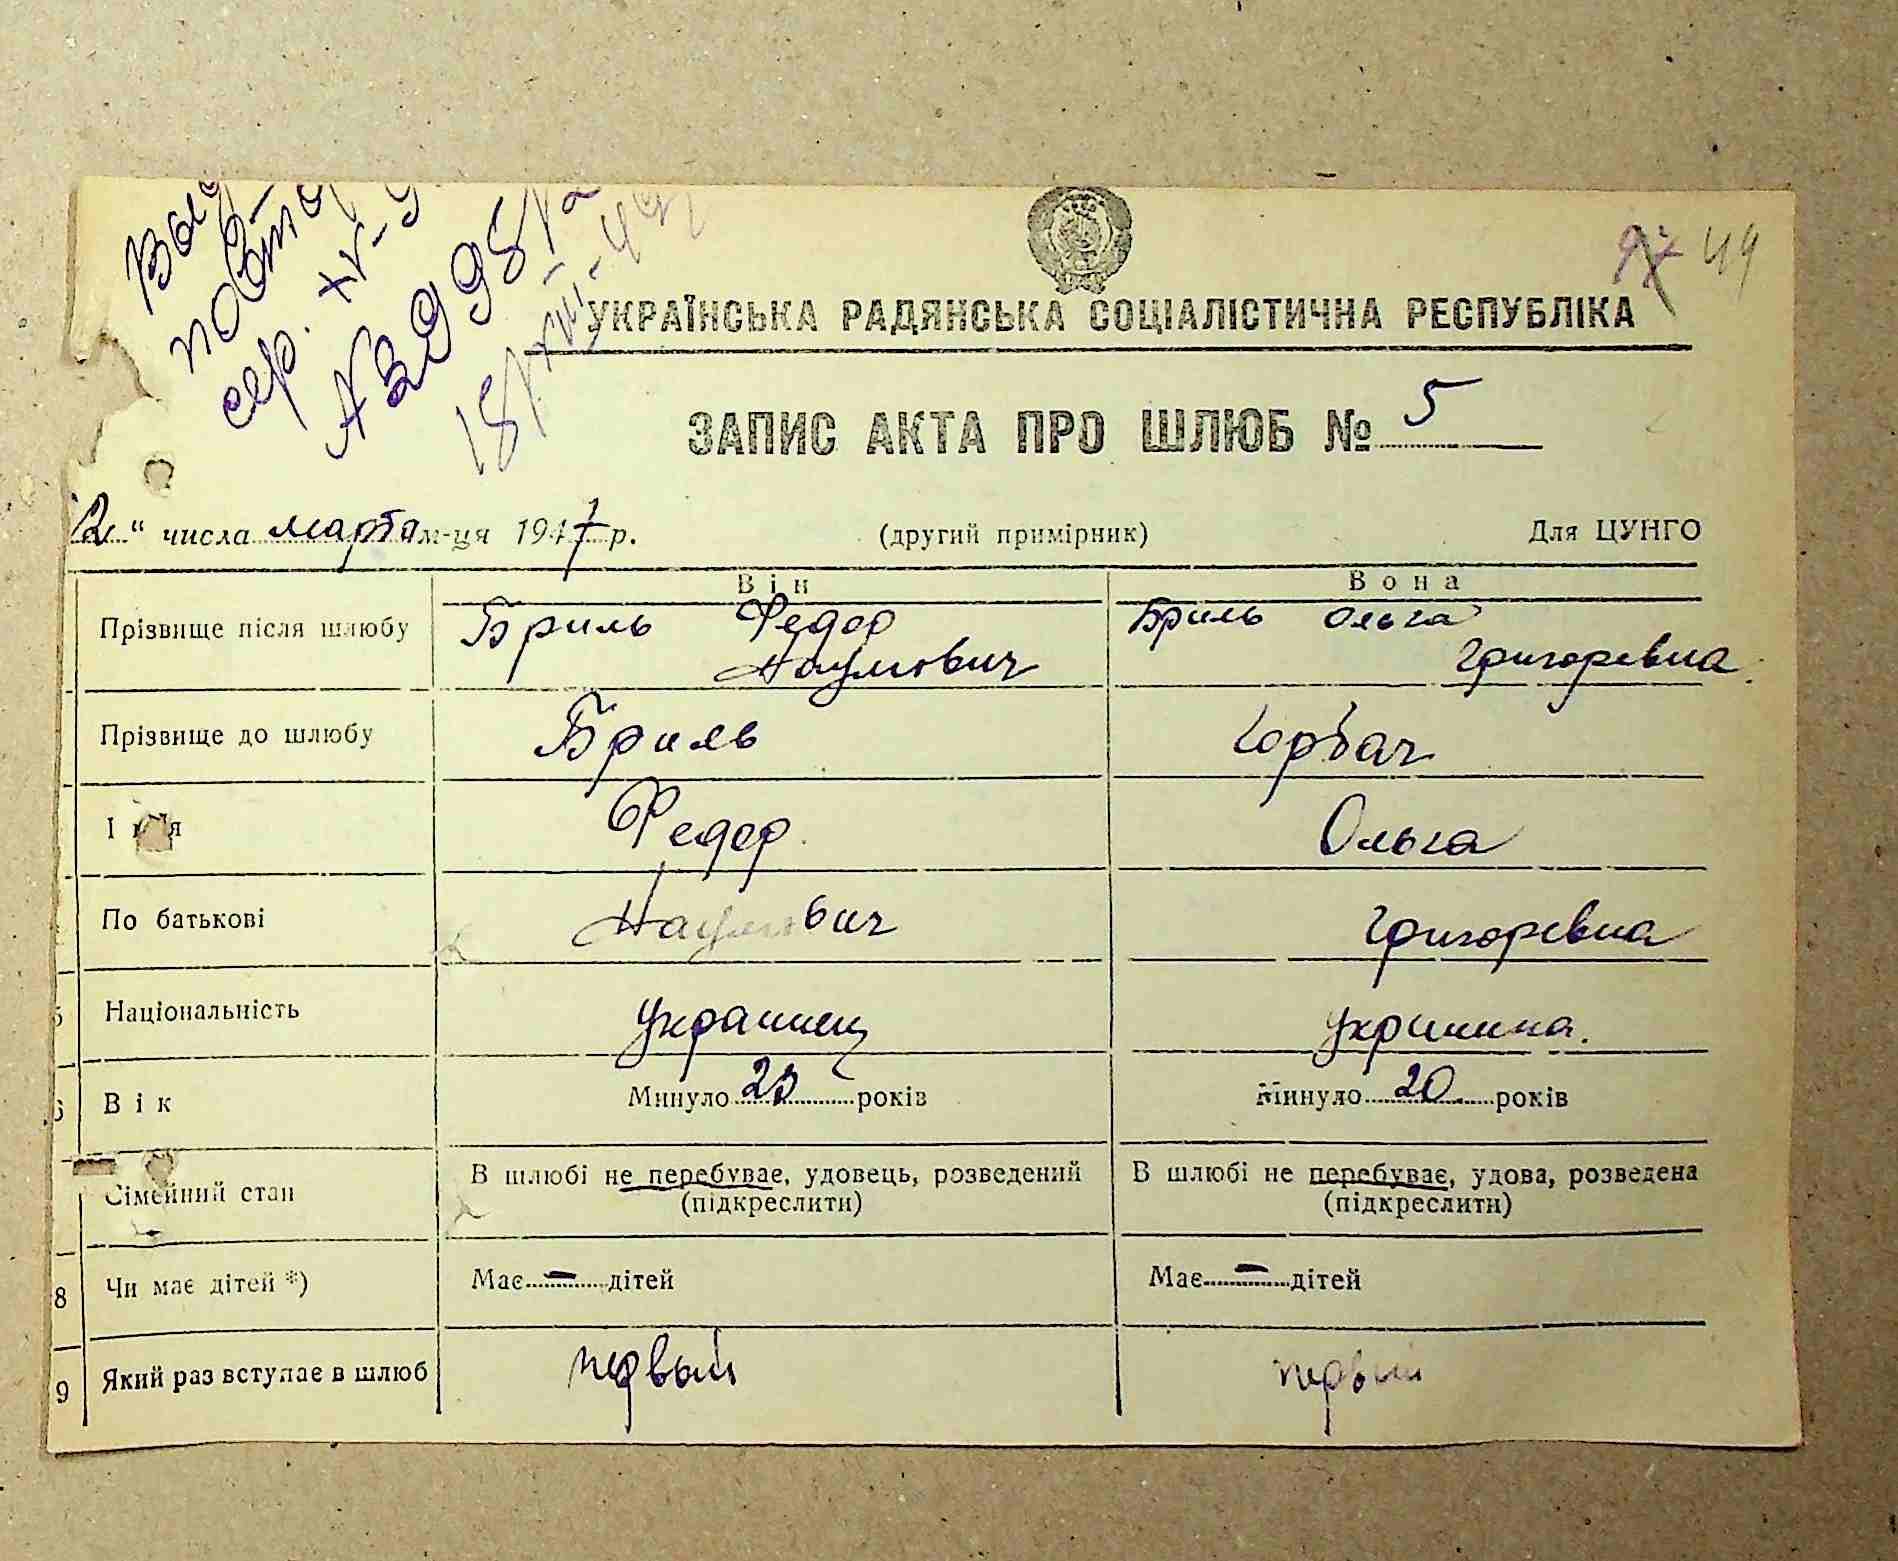 повтор
сер. XV-
№ 39981
97 49
УКРАЇНСЬКА РАДЯНСЬКА СОЦІАЛІСТИЧНА РЕСПУБЛІКА
ЗАПИС АКТА ПРО ШЛЮБ № 5
" числа марта м-ця 1947 р. (другий примірник) Для ЦУНГО
Він Вона
Прізвище після шлюбу Бриль Федор Наумович Бриль Ольга Григоревна
Прізвище до шлюбу Бриль Горбач
Федор Ольга
По батькові Наумович Григоревна
5 Національність украинец украинка.
6 Вік Минуло років Минуло 20 років
Сімейний стан В шлюбі не перебуває, удовець, розведений В шлюбі не перебуває, удова, розведена
(підкреслити) (підкреслити)
8 Чи має дітей *) Має - дітей Має - дітей
9 Який раз вступає в шлюб первый первый